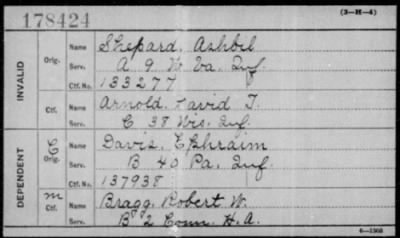 178424
(3—H—4)
INVALID
Orig.
Name Shepard, Ashbil
Serv. A 9 W Va. Inf.
Ctf. No. 133277
Ctf.
Name Arnold, David T.
Serv. C 38 Wis. Inf.
DEPENDENT
C
Orig.
Name Davis, Ephraim
Serv. B 40 Pa. Inf.
Ctf. No. 137938
m
Ctf.
Name Bragg, Robert W.
Serv. B 2 Conn. H. A.